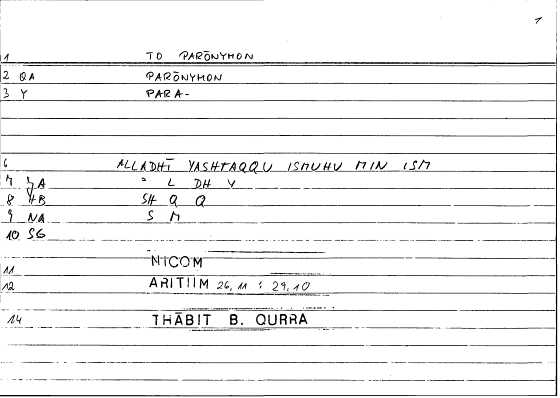 1
1 TO PARŌNYMON
2 QA PARŌNYMON
3 Y PARA-
6 ALLADHĪ YASHTAQQU ISMUHU MIN ISM
7 L DH Y
8 HB SH Q Q
9 NA S M
10 SG
11 NICOM
12 ARITIIM 26,11 : 29,10
14 THĀBIT B. QURRA